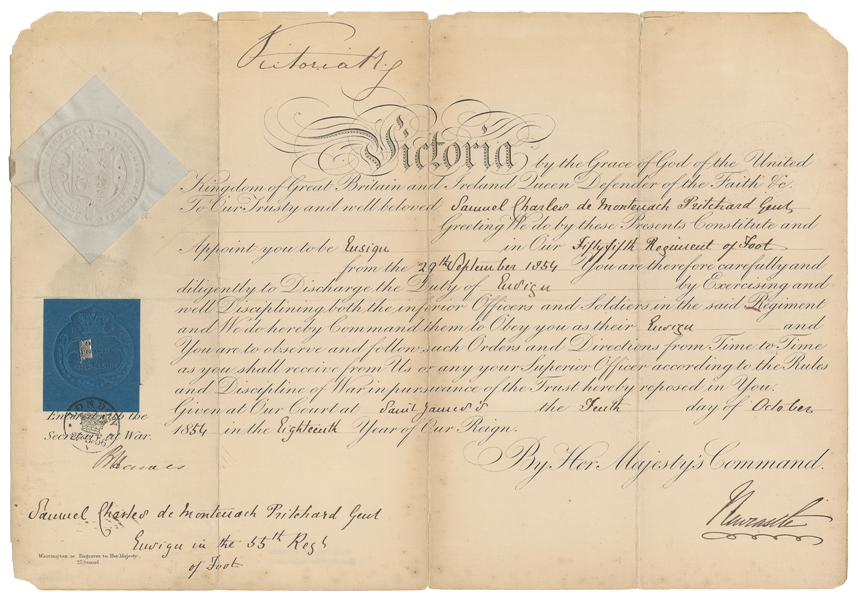 Victoria R
Victoria by the Grace of God of the United
Kingdom of Great Britain and Ireland Queen Defender of the Faith &c.
To Our Trusty and well beloved Samuel Charles de Montenach Pritchard Gent
Greeting We do by these Presents Constitute and
Appoint you to be Ensign in Our Fiftyfifth Regiment of Foot
from the 29th September 1854 You are therefore carefully and
diligently to Discharge the Duty of Ensign by Exercising and
well Disciplining both the inferior Officers and Soldiers in the said Regiment
and We do hereby Command them to Obey you as their Ensign and
You are to observe and follow such Orders and Directions from Time to Time
as you shall receive from Us or any your Superior Officer according to the Rules
and Discipline of War in pursuance of the Trust hereby reposed in You.
Given at Our Court at Saint James's the Tenth day of October
1854 in the Eighteenth Year of Our Reign.
By Her Majesty's Command.
Newcastle
LONDON
Entered with the
Secretary at War.
Samuel Charles de Montenach Pritchard Gent
Ensign in the 55th Regt
of Foot
Warrington sc Engraver to Her Majesty.
27, Strand.